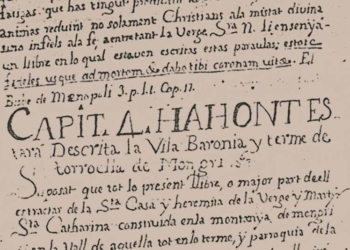 que has tingut
animas reduint no solament Christians ala mitat divina
sino infiels ala fe, a entretant la Verge, Sta N. li ensenyá
un llibre en lo qual estaven escritas estas paraulas; estote
fideles usque ad mortem & dabo tibi coronam vitæ. El
Bisbe de Monopoli 3. p. l. 1. Cap. 17.
CAPIT. 4. HAHONT ES
tará Descrita la Vila Baronia y terme de
torroella de Mongri
Suposat que tot lo present llibre, o major part de ell
es tractar de la Sta Casa y heremita de la Verge y Martir
Sta Catharina construida en la montanya de mongri
en la Vall de aquella tot en lo terme, y parroquia de la